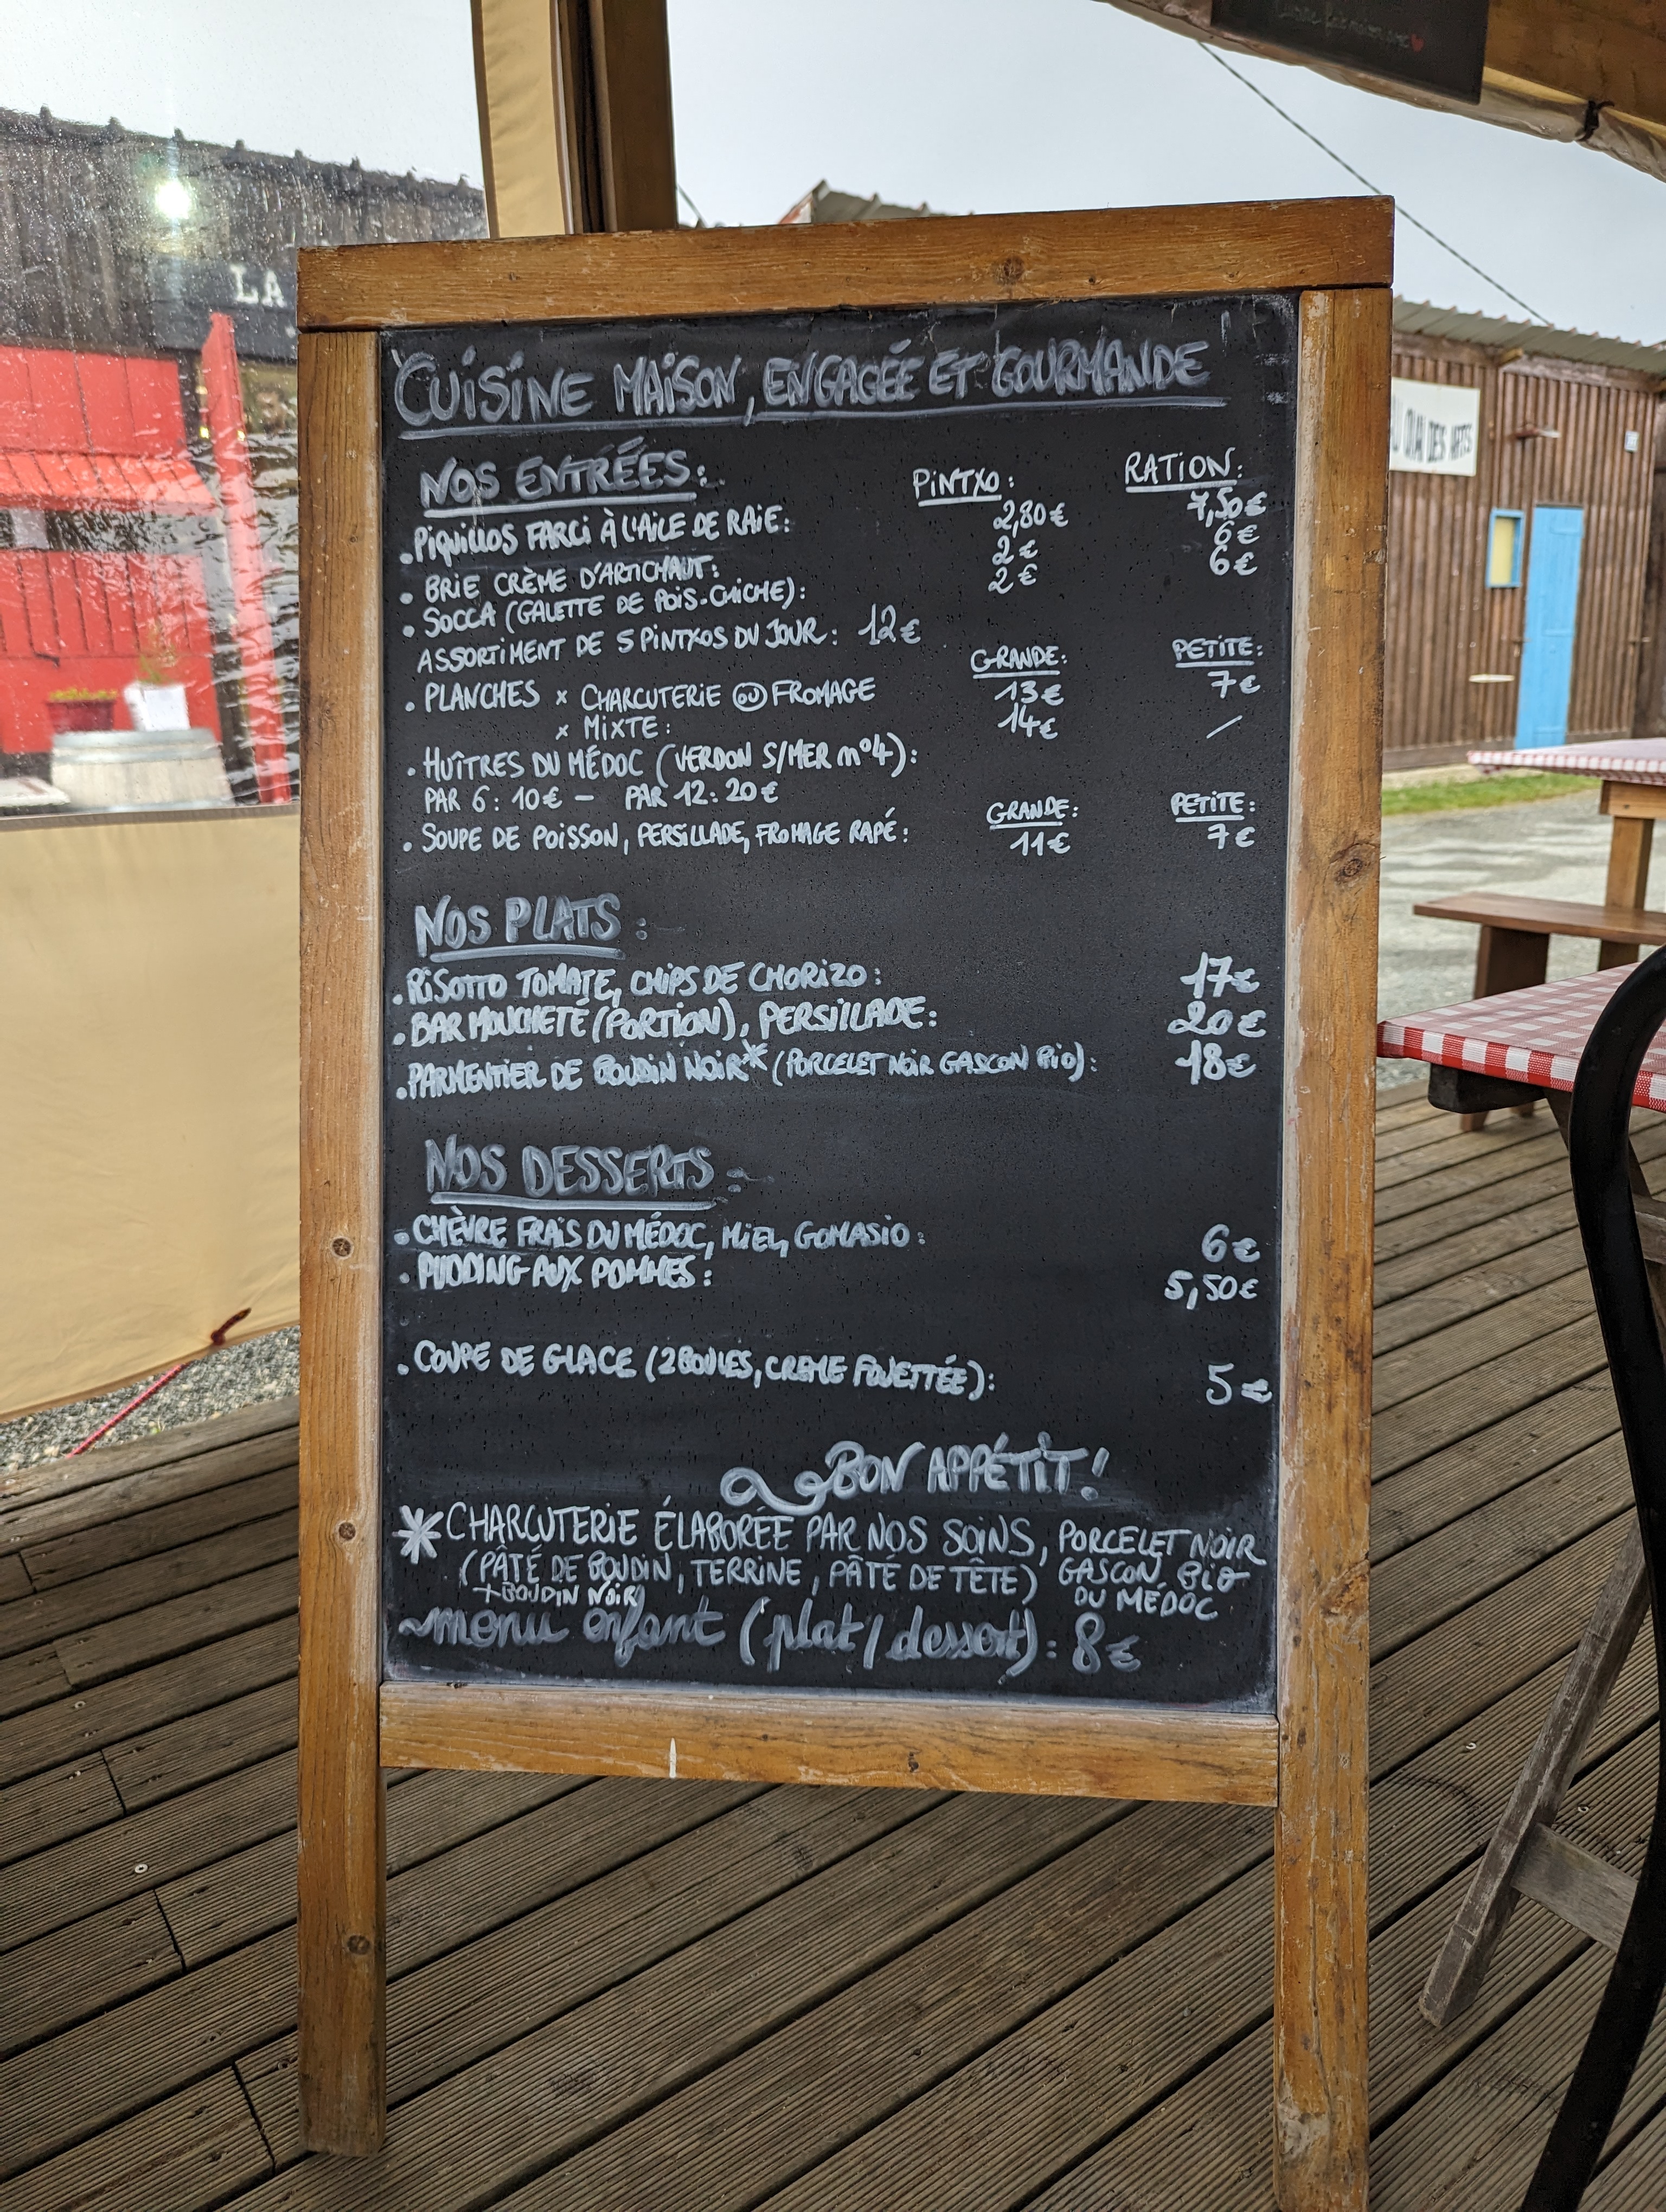 LA
U QUAI DES ARTS
CUISINE MAISON, ENGAGÉE ET GOURMANDE
NOS ENTRÉES: PINTXO: RATION:
. PIQUILLOS FARCI À L'AILE DE RAIE: 2,80€ 7,50€
. BRIE CRÈME D'ARTICHAUT: 2€ 6€
. SOCCA (GALETTE DE POIS-CHICHE): 2€ 6€
ASSORTIMENT DE 5 PINTXOS DU JOUR: 12€
GRANDE: PETITE:
. PLANCHES x CHARCUTERIE OU FROMAGE 13€ 7€
x MIXTE: 14€ /
. HUÎTRES DU MÉDOC (VERDON S/MER n°4):
PAR 6: 10€ - PAR 12: 20€
GRANDE: PETITE:
. SOUPE DE POISSON, PERSILLADE, FROMAGE RAPÉ: 11€ 7€
NOS PLATS:
. RISOTTO TOMATE, CHIPS DE CHORIZO: 17€
. BAR MOUCHETÉ (PORTION), PERSILLADE: 20€
. PARMENTIER DE BOUDIN NOIR* (PORCELET NOIR GASCON BIO): 18€
NOS DESSERTS:
. CHÈVRE FRAIS DU MÉDOC, MIEL, GOMASIO: 6€
. PUDDING AUX POMMES: 5,50€
. COUPE DE GLACE (2 BOULES, CREME FOUETTÉE): 5€
BON APPÉTIT!
* CHARCUTERIE ÉLABORÉE PAR NOS SOINS, PORCELET NOIR
(PÂTÉ DE BOUDIN, TERRINE, PÂTÉ DE TÊTE) GASCON BIO
+ BOUDIN NOIR) DU MÉDOC
menu enfant (plat/dessert): 8€